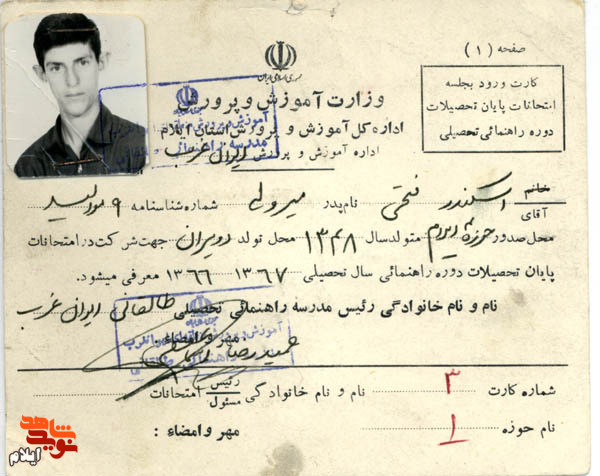 صفحه (۱)
کارت ورود بجلسه
امتحانات پایان تحصیلات
دوره راهنمائی تحصیلی
جمهوری اسلامی ایران
وزارت آموزش و پرورش
اداره کل آموزش و پرورش استان ایلام
اداره آموزش و پرورش ایوان غرب
خانم
آقای اسکندر فتحی نام پدر میرولی شماره شناسنامه ۹ موالید
محل صدور حوزه ایلام متولد سال ۱۳۴۸ محل تولد جهت شرکت در امتحانات
پایان تحصیلات دوره راهنمائی سال تحصیلی ۱۳۶۷ ۱۳۶۶ معرفی میشود.
نام و نام خانوادگی رئیس مدرسه راهنمائی تحصیلی طالقانی ایوان غرب
مهر و امضاء:
شماره کارت ۳ نام و نام خانوادگی رئیس مسئول امتحانات
نام حوزه ۱ مهر و امضاء :
شاهد
نوید
ایلام